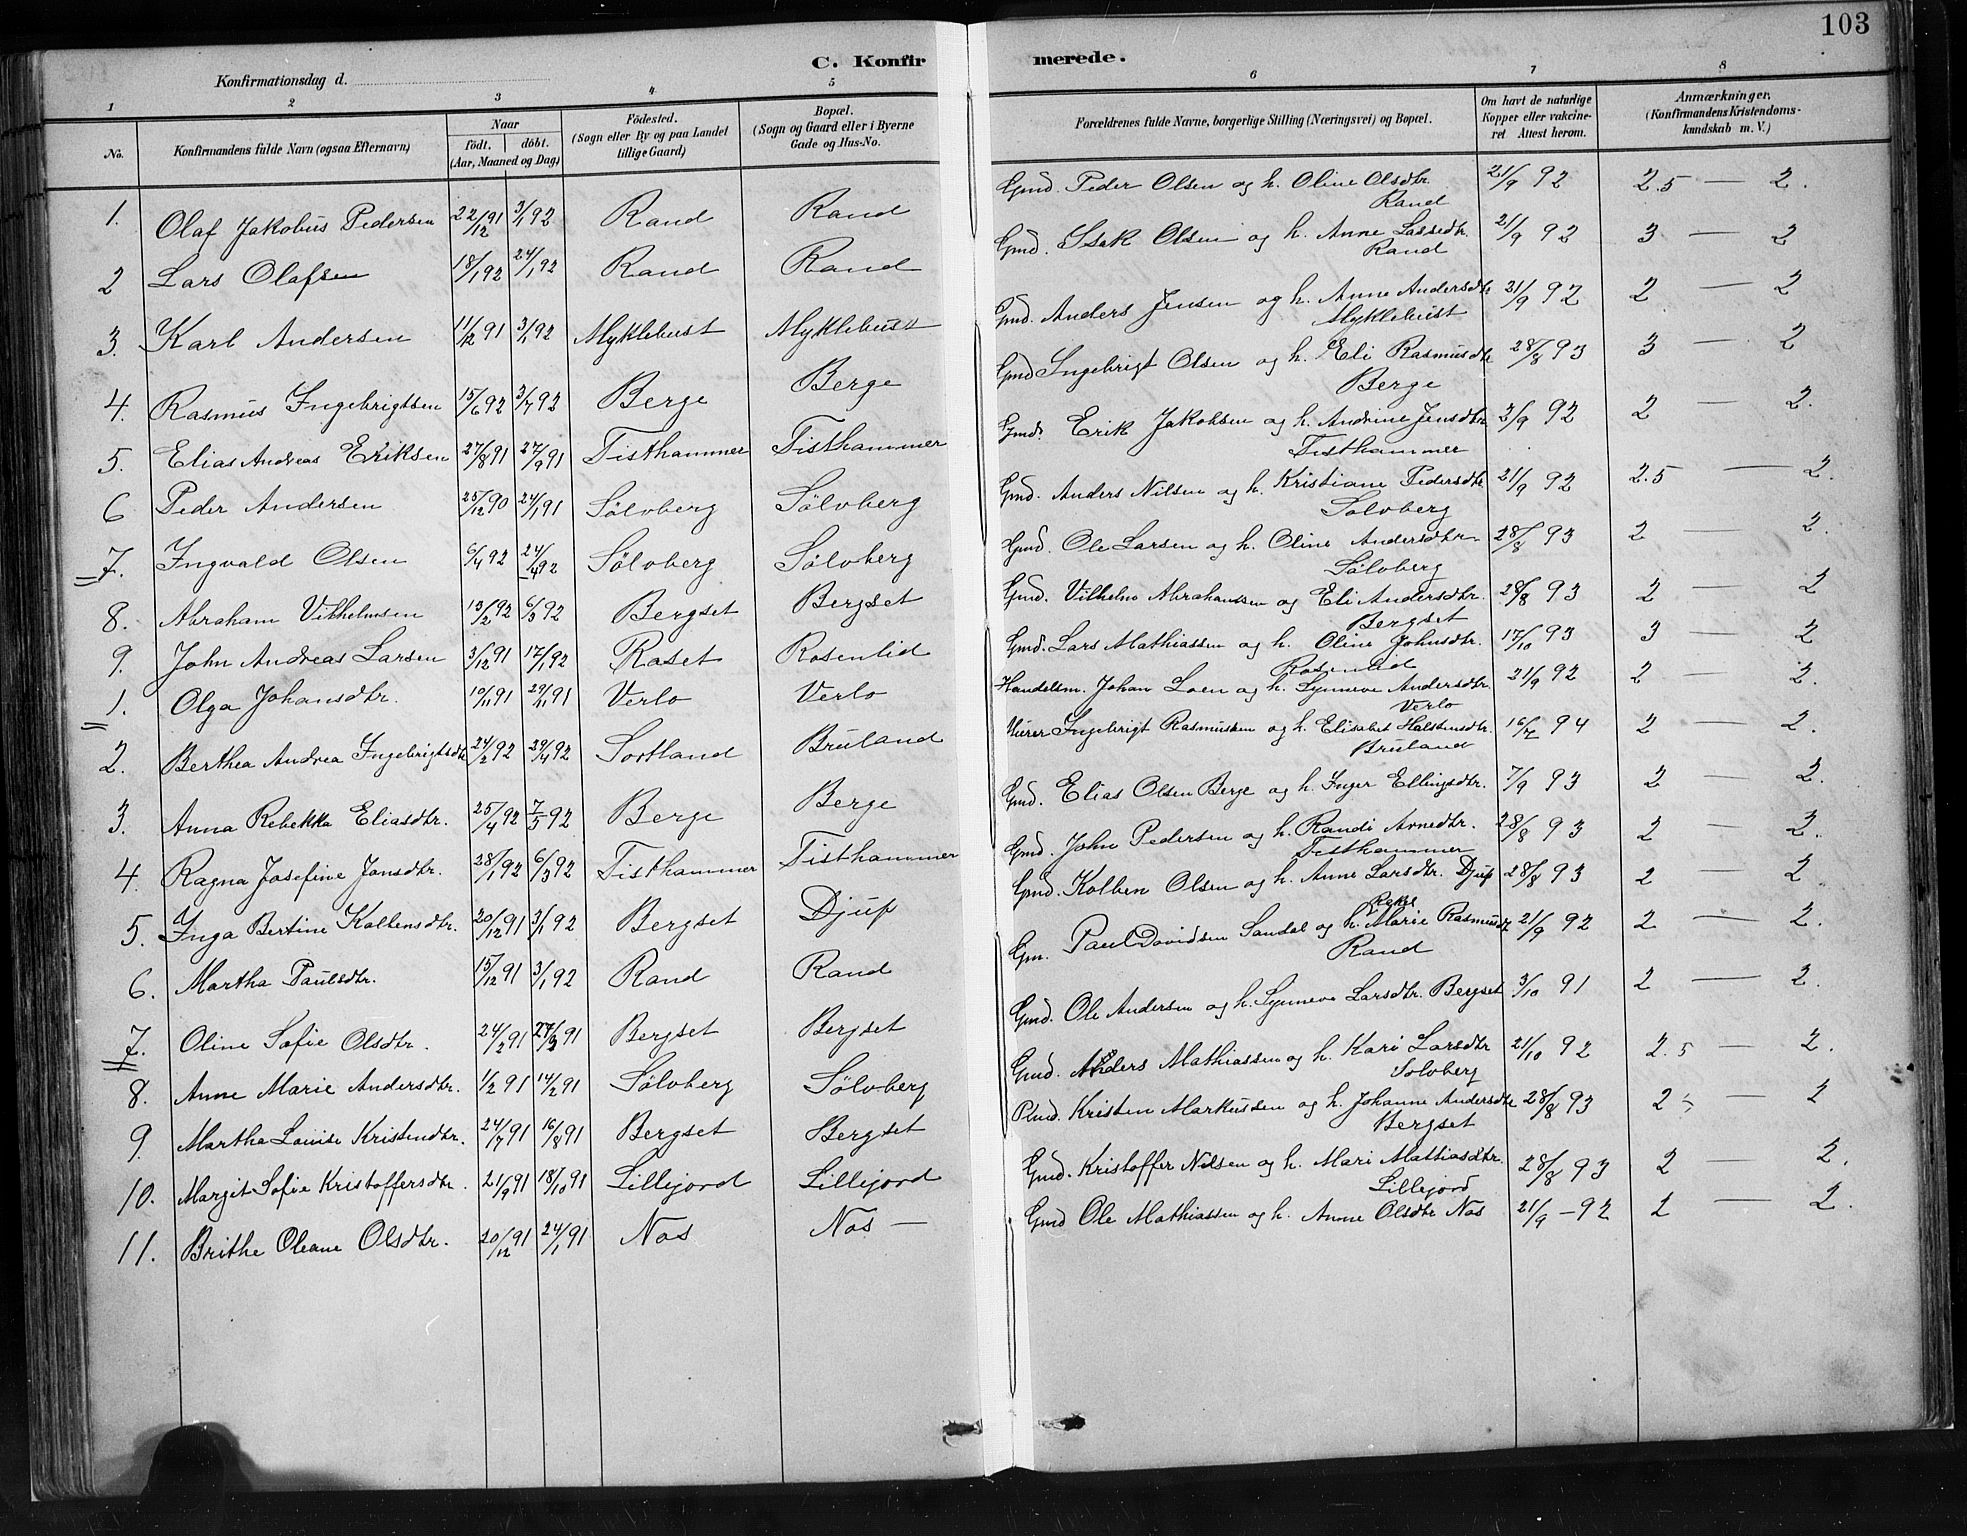 103
C. Konfirmerede.
Konfirmationsdag d.
1 2 3 4 5 6 7 8
No. Konfirmandens fulde Navn (ogsaa Efternavn) Naar födt. döbt. (Aar, Maaned og Dag) Födested. (Sogn eller By og paa Landet tillige Gaard) Bopæl. (Sogn og Gaard eller i Byerne Gade og Hus-No. Forældrenes fulde Navne, borgerlige Stilling (Næringsvei) og Bopæl. Om havt de naturlige Kopper eller vakcineret Attest herom. Anmærkninger, (Konfirmandens Kristendomskundskab m. V.)
1. Olaf Jakobus Pedersen 22/12 91 3/1 92 Rand Rand Gmd. Peder Olsen og h. Oline Olsdtr. Rand 21/9 92 2.5 — 2.
2 Lars Olafsen 18/1 92 24/1 92 Rand Rand Gmd. Isak Olsen og h. Anne Lassedtr. Rand 21/9 92 3 — 2
3. Karl Andersen 11/12 91 3/1 92 Myklebust Myklebust Gmd. Anders Jensen og h. Anne Andersdtr Myklebust 21/9 92 2 — 2
4. Rasmus Ingebrigtsen 15/6 92 3/7 92 Berge Berge Gmd Ingebrigt Olsen og h. Eli Rasmusdtr Berge 28/8 93 3 — 2
5. Elias Andreas Eriksen 27/8 91 27/9 91 Tisthammer Tisthammer Gmd. Erik Jakobsen og h. Andrine Jensdtr Tisthammer 2/9 92 2 — 2.
6 Peder Andersen 25/12 90 24/1 91 Sölvberg Sölvberg Gmd. Anders Nilsen og h. Kristiane Pedersdtr Sölvberg 21/9 92 2.5 — 2.
7. Ingvald Olsen 6/4 92 24/4 92 Sölvberg Sölvberg Gmd. Ole Larsen og h. Oline Andersdtr Sölvberg 28/8 93 2 — 2.
8. Abraham Vilhelmsen 13/2 92 6/3 92 Bergset Bergset Gmd. Vilhelm Abrahamsen og Eli Andersdtr. Bergset 28/8 93 2 — 2
9. John Andreas Larsen 3/12 91 17/1 92 Raset Rosenlid Gmd. Lars Mathiassen og h. Oline Johnsdtr. Rosenlid 17/10 93 3 — 2
1. Olga Johansdtr. 10/11 91 29/11 91 Verlo Verlo Handelsm. Johan Loen og h. Synneve Andersdtr. Verlo 21/9 92 2 — 2.
2. Berthea Andrea Ingebrigtsdtr 24/2 92 29/4 92 Sortland Bruland Murer Ingebrigt Rasmussen og h. Elisabet Halstensdtr. Bruland 16/7 94 2 — 2.
3. Anna Rebekka Eliasdtr. 25/4 92 7/5 92 Berge Berge Gmd. Elias Olsen Berge og h. Inger Ellingsdtr. 7/9 93 2 — 2.
4. Ragna Josefine Jonsdtr. 28/1 92 6/3 92 Tisthammer Tisthammer Gmd. John Pedersen og h. Randi Arnedtr. Tisthammer 28/8 93 2 — 2.
5. Inga Bertine Kolbensdtr. 20/12 91 3/1 92 Bergset Djup Gmd. Kolben Olsen og h. Anne Larsdtr. Djup 28/8 93 2 — 2
6. Martha Paulsdtr. 15/12 91 3/1 92 Rand Rand Gm. Paul Davidsen Sandal og h. Marie Rasmusdtr Rand 21/9 92 2 — 2.
7. Oline Sofie Olsdtr. 24/2 91 27/3 91 Bergset Bergset Gmd. Ole Andersen og h. Synneve Larsdtr. Bergset 3/10 91 2 — 2.
8. Anne Marie Andersdtr. 1/2 91 14/2 91 Sölvberg Sölvberg Gmd. Anders Mathiassen og h. Kari Larsdtr Solvberg 21/10 92 2.5 — 2.
9. Martha Louise Kristendtr. 24/7 91 16/8 91 Bergset Bergset Plmd. Kristen Markussen og h. Johanne Andersdtr Bergset 28/8 93 2 5 — 2
10. Margit Sofie Kristoffersdtr. 21/9 91 18/10 91 Lillejord Lillejord Gmd. Kristoffer Nilsen og h. Mari Mathiasdtr. Lillejord 28/8 93 2 2.
11. Brithe Oleane Olsdtr. 20/12 91 24/1 91 Nos Nos — Gmd Ole Mathiassen og h. Anne Olsdtr Nos 21/9 — 92 2 — 2.